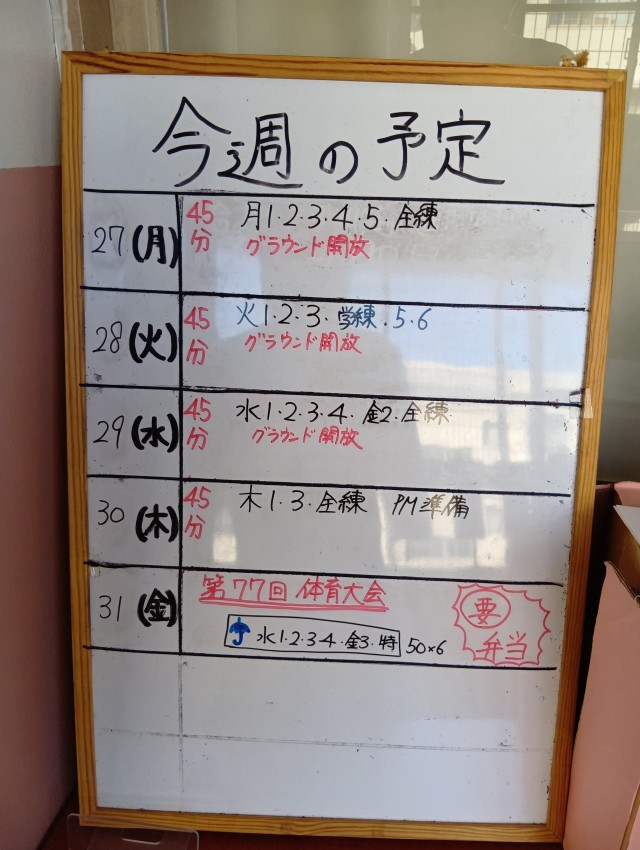 今週の予定
27 (月) 45分 月1・2・3・4・5・全練
グラウンド開放
28 (火) 45分 火1・2・3・学練・5・6
グラウンド開放
29 (水) 45分 水1・2・3・4・金2・全練
グラウンド開放
30 (木) 45分 木1・3・全練 PM準備
31 (金) 第77回 体育大会
水1・2・3・4・金3・特 50×6
要弁当